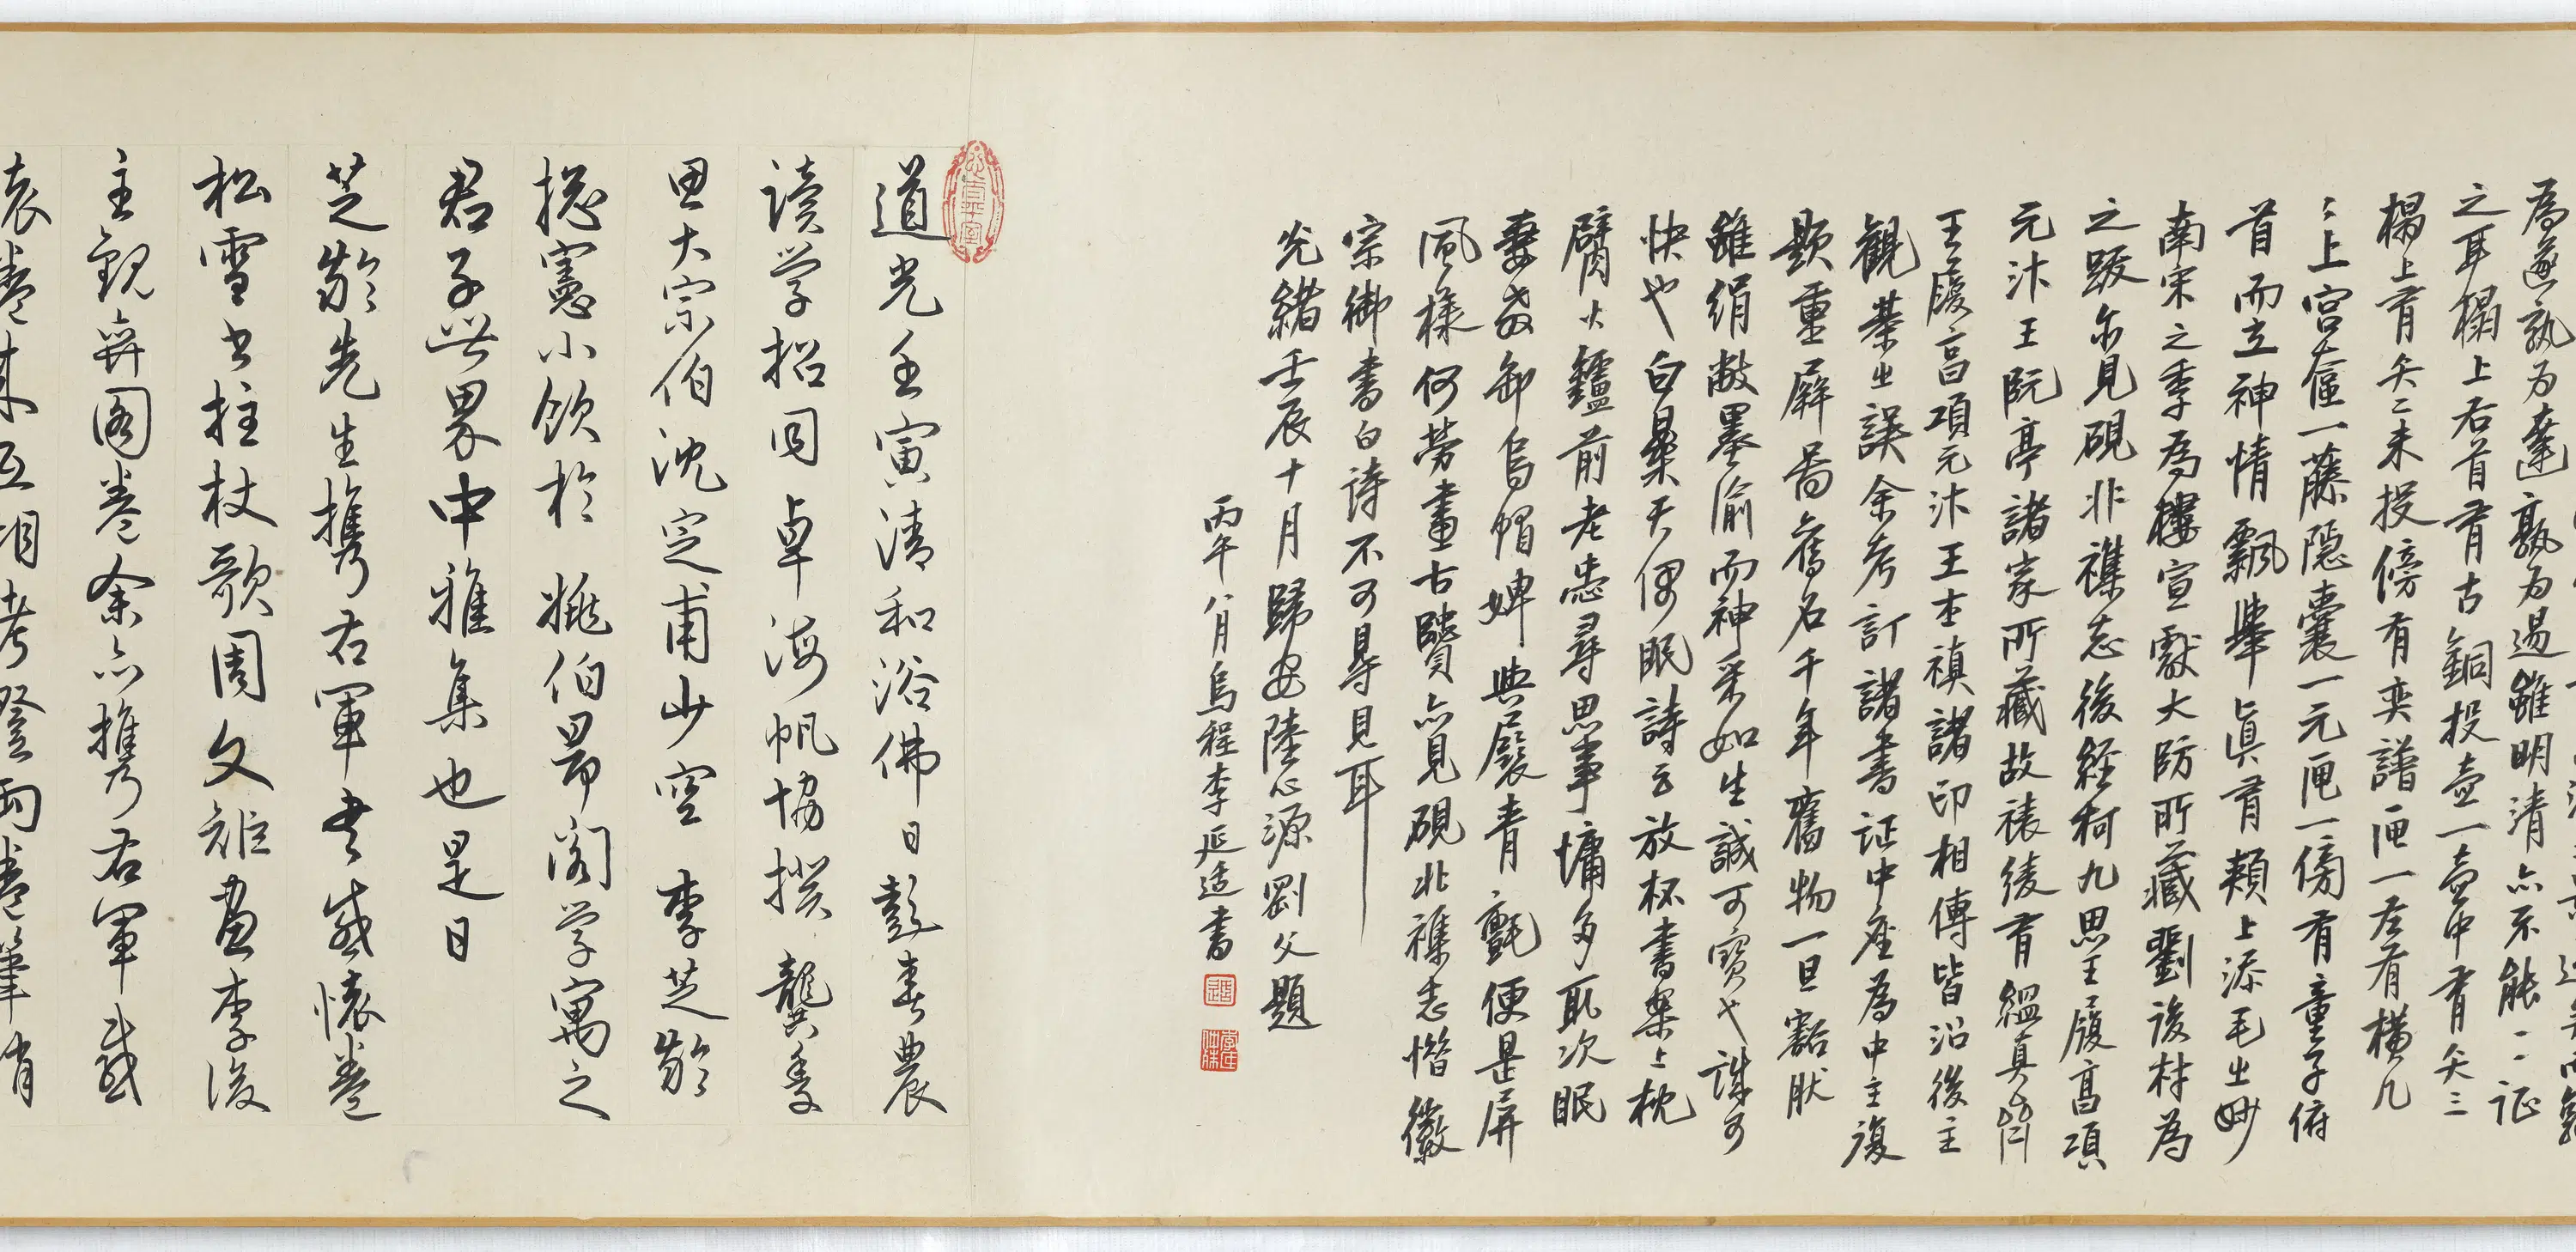 為遂孰为達孰为過雖明清亦不能一一证
之耳榻上右首有古銅投壺一壺中有矢三
榻上有矢二未投傍有奕譜匣一左有横几
几上宫奩一藤隱囊一元匣一傍有童子俯
首而立神情飄舉真有頰上添毛之妙
南宋之季為樓宣獻大防所藏劉後村為
之跋亦見硯北襍志後経柯九思王履高項
元汴王阮亭諸家所藏故裱綾有緼真
王廢高項元汴王士禎諸印相傳皆沿後主
觀棊之誤余考訂諸書证中座為中主復
題重屏圖舊名千年舊物一旦豁肰
雖絹敝墨渝而神采如生誠可寶也誠可
快也白樂天偶眠詩云放杯書案上枕
臂火鑪前老愛尋思事慵多取次眠
妻教卸烏帽婢與展青氈便是屏
風樣何勞畫古賢亦見硯北襍志惜徽
宗御書白詩不可尋見耳
光緒壬辰十月歸安陸心源劉父題
丙午八月烏程李延适書
道光壬寅清和浴佛日彭春農
讀学招同卓海帆協揆龔季
思大宗伯沈定甫少空李芝齡
捴憲小飲於姚伯昴阁学寓之
君子世界中雅集也是日
芝齡先生攜右軍書感懷卷
松雪書拄杖歌周文矩畫李後
主觀弈圖卷余亦攜右軍感